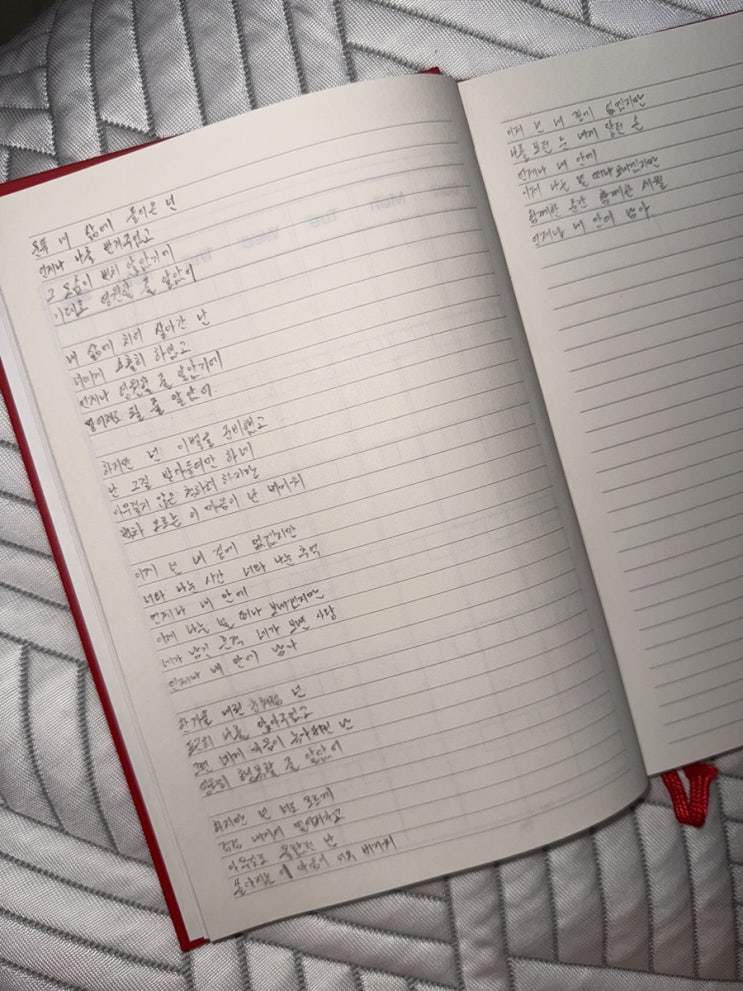 온뜻 내 삶에 들어온 넌
언제나 나를 반겨주었고
그 모습이 변치 않았기에
이대로 영원할 줄 알았어
내 삶에 치여 살아간 난
너에게 소홀히 하였고
언제나 영원할 줄 알았기에
멀어져도 될 줄 알았어
하지만 넌 이별을 준비했고
난 그걸 받아들여만 하네
아무렇지 않은 척하려 하지만
차오르는 이 마음이 난 버거워
이제 넌 내 곁에 없겠지만
너와 나눈 시간 너와 나눈 추억
언제나 내 안에
이제 나는 널 떠나 보내겠지만
네가 남긴 흔적 네가 보낸 사랑
언제나 내 안에 남아
차가울 내린 눈처럼 넌
나를 안아주었고
그런 너에 마음이 녹아버린 난
영원히 행복할 줄 알았어
하지만 넌 나도 모르게
점점 내게서 멀어지고
아무것도 못한 난
쏟아지는 이 마음이 너무 버거워
이제 넌 내 곁에 없겠지만
나를 보던 눈 내게 닿던 손
언제나 내 안에
이제 나는 널 떠나 보내겠지만
함께한 순간 함께한 시절
언제나 내 안에 남아